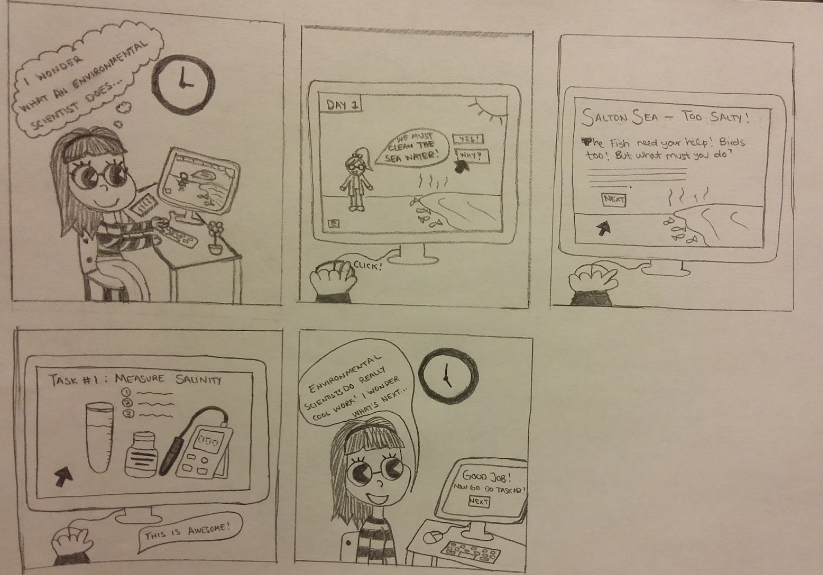 I WONDER
WHAT AN ENVIRONMENTAL
SCIENTIST DOES...
DAY 1
WE MUST
CLEAN THE
SEA WATER!
YES!
WHY?
CLICK!
SALTON SEA - TOO SALTY!
The fish need your help! Birds
too! But what must you do?
NEXT
TASK #1: MEASURE SALINITY
1
2
3
THIS IS AWESOME!
ENVIRONMENTAL
SCIENTISTS DO REALLY
COOL WORK! I WONDER
WHAT'S NEXT...
GOOD JOB!
NOW GO DO TASK #2!
NEXT